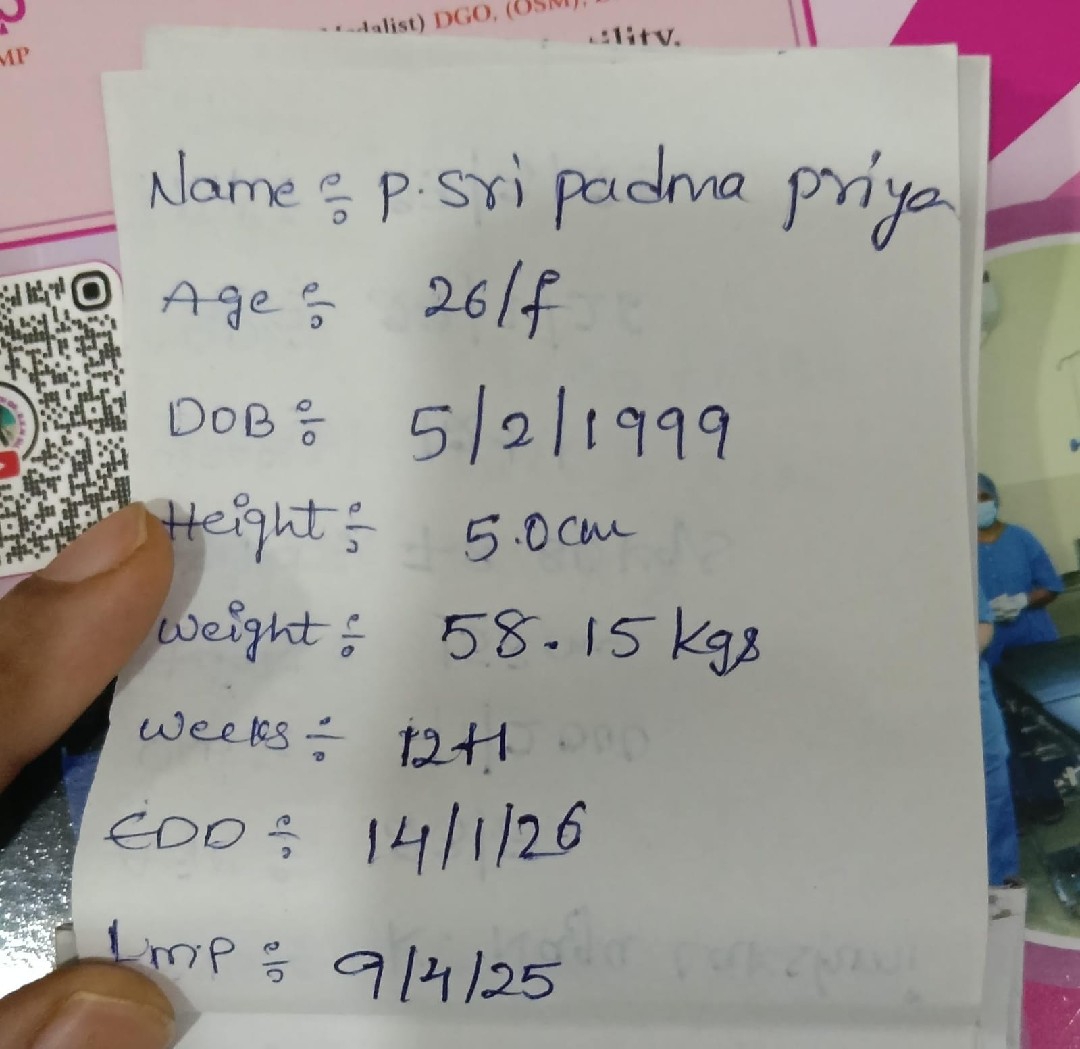 MP
DGO, (OSM),
Name : P. Sri padma priya
Age : 26/f
DOB : 5/2/1999
Height : 5.0cm
Weight : 58.15 kgs
Weeks : 12+1
EDD : 14/1/26
LMP : 9/4/25